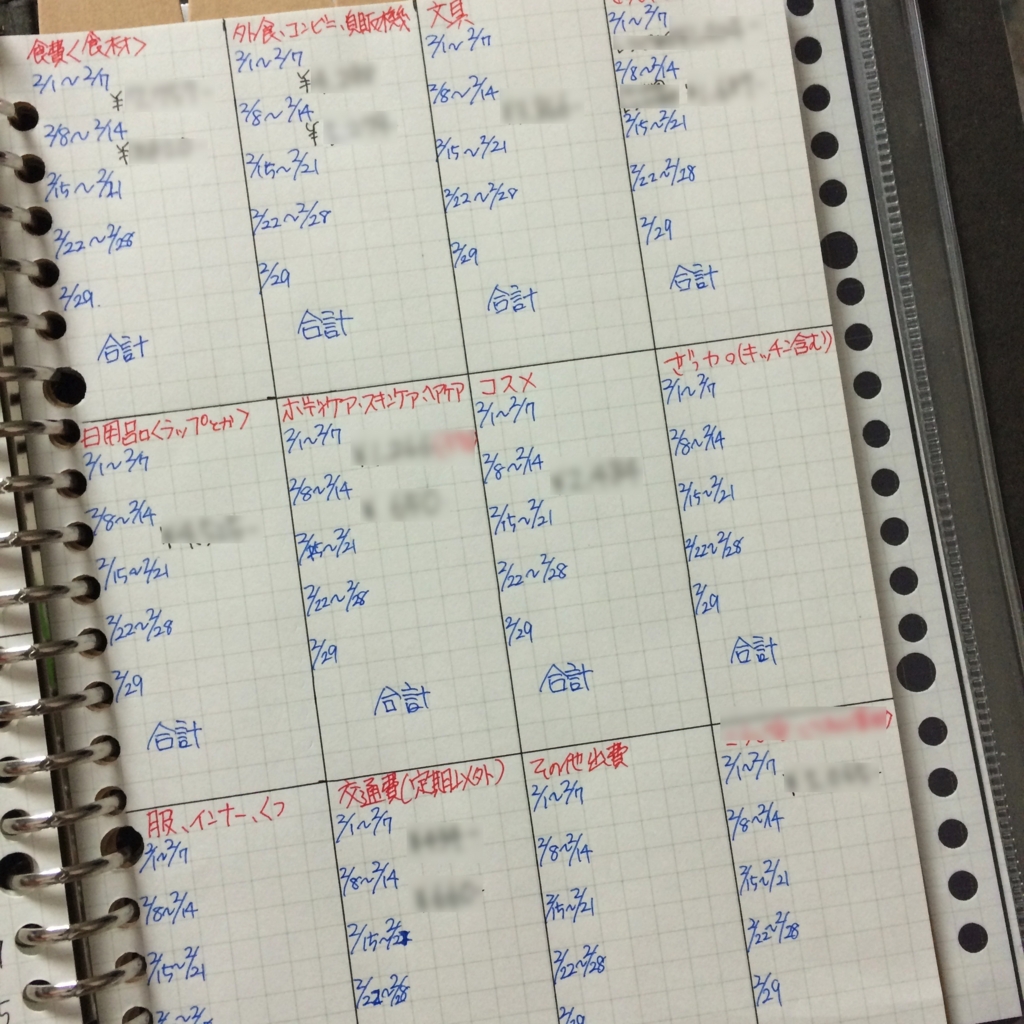 食費<食材>
2/1〜2/7
¥
2/8〜2/14
¥
2/15〜2/21
2/22〜2/28
2/29.
合計
外食、コンビニ、自販機
2/1〜2/7
¥
2/8〜2/14
¥
2/15〜2/21
2/22〜2/28
2/29
合計
文具
2/1〜2/7
2/8〜2/14
2/15〜2/21
2/22〜2/28
2/29
合計
2/1〜2/7
2/8〜2/14
2/15〜2/21
2/22〜2/28
2/29
合計
日用品<ラップとか>
2/1〜2/7
2/8〜2/14
2/15〜2/21
2/22〜2/28
2/29
合計
ボディケア・スキンケア・ヘアケア
2/1〜2/7
2/8〜2/14
2/15〜2/21
2/22〜2/28
2/29
合計
コスメ
2/1〜2/7
2/8〜2/14
2/15〜2/21
2/22〜2/28
2/29
合計
ざっカ(キッチン含む)
2/1〜2/7
2/8〜2/14
2/15〜2/21
2/22〜2/28
2/29
合計
服、インナー、くつ
2/1〜2/7
2/8〜2/14
2/15〜2/21
交通費(定期以外)
2/1〜2/7
2/8〜2/14
2/15〜2/21
2/22〜2/28
その他出費
2/1〜2/7
2/8〜2/14
2/15〜2/21
2/22〜2/28
2/29
2/1〜2/7
2/8〜2/14
2/15〜2/21
2/22〜2/28
2/29